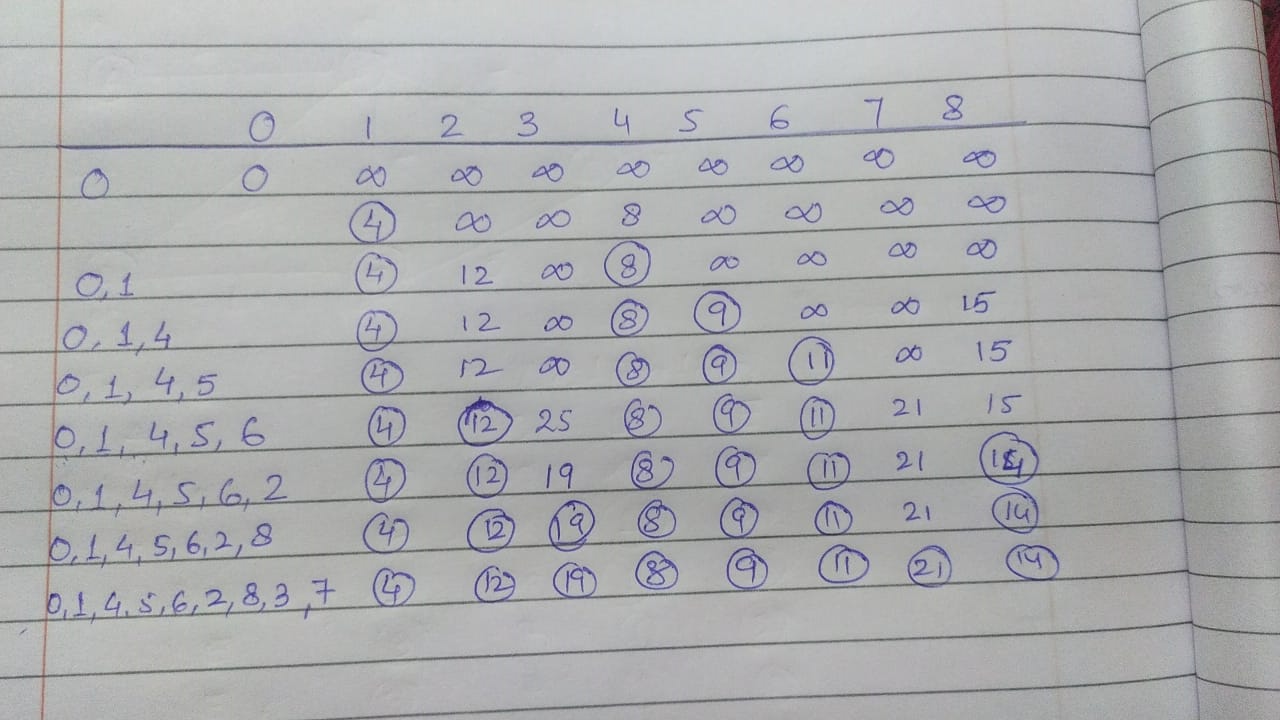 0 1 2 3 4 5 6 7 8
0 0 ∞ ∞ ∞ ∞ ∞ ∞ ∞ ∞
4 ∞ ∞ 8 ∞ ∞ ∞ ∞
0,1 4 12 ∞ 8 ∞ ∞ ∞ ∞
0,1,4 4 12 ∞ 8 9 ∞ ∞ 15
0,1,4,5 4 12 ∞ 8 9 11 ∞ 15
0,1,4,5,6 4 12 25 8 9 11 21 15
0,1,4,5,6,2 4 12 19 8 9 11 21 14
0,1,4,5,6,2,8 4 12 19 8 9 11 21 14
0,1,4,5,6,2,8,3,7 4 12 19 8 9 11 21 14